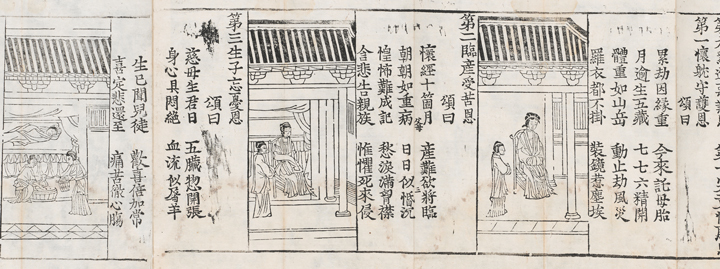 第一懷躭守護恩
頌曰
累劫因緣重 今來託母胎
月逾生五藏 七七六精開
體重如山岳 動止劫風災
羅衣都不掛 裝鏡惹塵埃
第二臨產受苦恩
頌曰
懷經十箇月 產難欲將臨
朝朝如重病 日日似惛沉
惶怖難成記 愁淚滿胷襟
含悲告親族 惟懼死來侵
第三生子忘憂恩
頌曰
慈母生君日 五臓惣開張
身心具悶絕 血流似屠羊
生已聞兒徤 歡喜倍加常
喜定悲還至 痛苦徹心膓